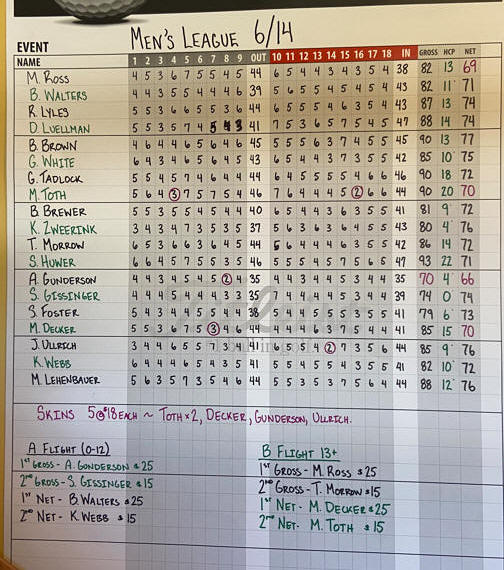 MEN'S LEAGUE 6/14
EVENT
NAME 1 2 3 4 5 6 7 8 9 OUT 10 11 12 13 14 15 16 17 18 IN GROSS HCP NET
M. ROSS 4 5 3 6 7 5 5 4 5 44 6 5 4 4 3 4 3 5 4 38 82 13 69
B. WALTERS 4 4 3 5 5 4 4 4 6 39 5 6 5 5 4 5 4 5 4 43 82 11 71
R. LYLES 5 5 3 6 6 5 5 3 6 44 6 5 5 5 4 6 3 5 4 43 87 13 74
D. LUELLMAN 5 5 3 5 7 4 5 4 3 41 7 5 3 6 5 7 5 4 5 47 88 14 74
B. BROWN 4 6 4 4 6 5 6 4 6 45 5 5 5 6 7 3 4 5 5 45 90 13 77
G. WHITE 6 4 3 4 6 5 6 4 5 43 6 5 4 4 3 7 3 5 5 42 85 10 75
G. TADLOCK 5 5 4 5 7 4 6 4 4 44 6 4 5 5 5 5 4 6 6 46 90 18 72
M. TOTH 5 6 4 3 7 5 7 5 4 46 7 6 4 4 4 5 2 6 6 44 90 20 70
B. BREWER 5 5 3 5 5 4 5 4 4 40 6 5 4 4 3 6 3 5 5 41 81 9 72
K. ZWEERINK 3 4 3 4 7 3 5 3 5 37 5 6 3 6 3 6 4 5 5 43 80 4 76
T. MORROW 6 5 3 6 6 3 6 4 5 44 5 6 4 4 4 6 3 5 5 42 86 14 72
S. HUWER 6 6 4 5 7 5 5 3 5 46 5 5 5 4 5 7 5 6 5 47 93 22 71
A. GUNDERSON 4 4 3 4 5 4 5 2 4 35 4 4 3 4 4 5 3 4 4 35 70 4 66
S. GISSINGER 4 4 4 5 4 4 4 3 3 35 7 4 4 4 4 5 3 4 4 39 74 0 74
S. FOSTER 5 4 3 4 4 5 5 4 4 38 5 4 4 5 5 5 3 5 5 41 79 6 73
M. DECKER 5 5 3 6 7 5 3 4 6 44 4 4 4 6 3 7 5 4 4 41 85 15 70
J. ULLRICH 3 4 4 6 5 5 7 3 4 41 6 5 5 4 2 7 3 5 6 44 85 9 76
K. WEBB 6 4 4 4 6 5 4 3 5 41 5 5 4 5 5 4 3 5 5 41 82 10 72
M. LEHENBAUER 5 6 3 5 7 3 5 4 6 44 5 5 3 5 3 7 5 6 4 44 88 12 76
SKINS 5@$18 EACH ~ TOTH x 2, DECKER, GUNDERSON, ULLRICH.
A FLIGHT (0-12)
1ST GROSS - A. GUNDERSON $25
2ND GROSS - S. GISSINGER $15
1ST NET - B. WALTERS $25
2ND NET - K. WEBB $15
B FLIGHT 13+
1ST GROSS - M. ROSS $25
2ND GROSS - T. MORROW $15
1ST NET - M. DECKER $25
2ND NET - M. TOTH $15